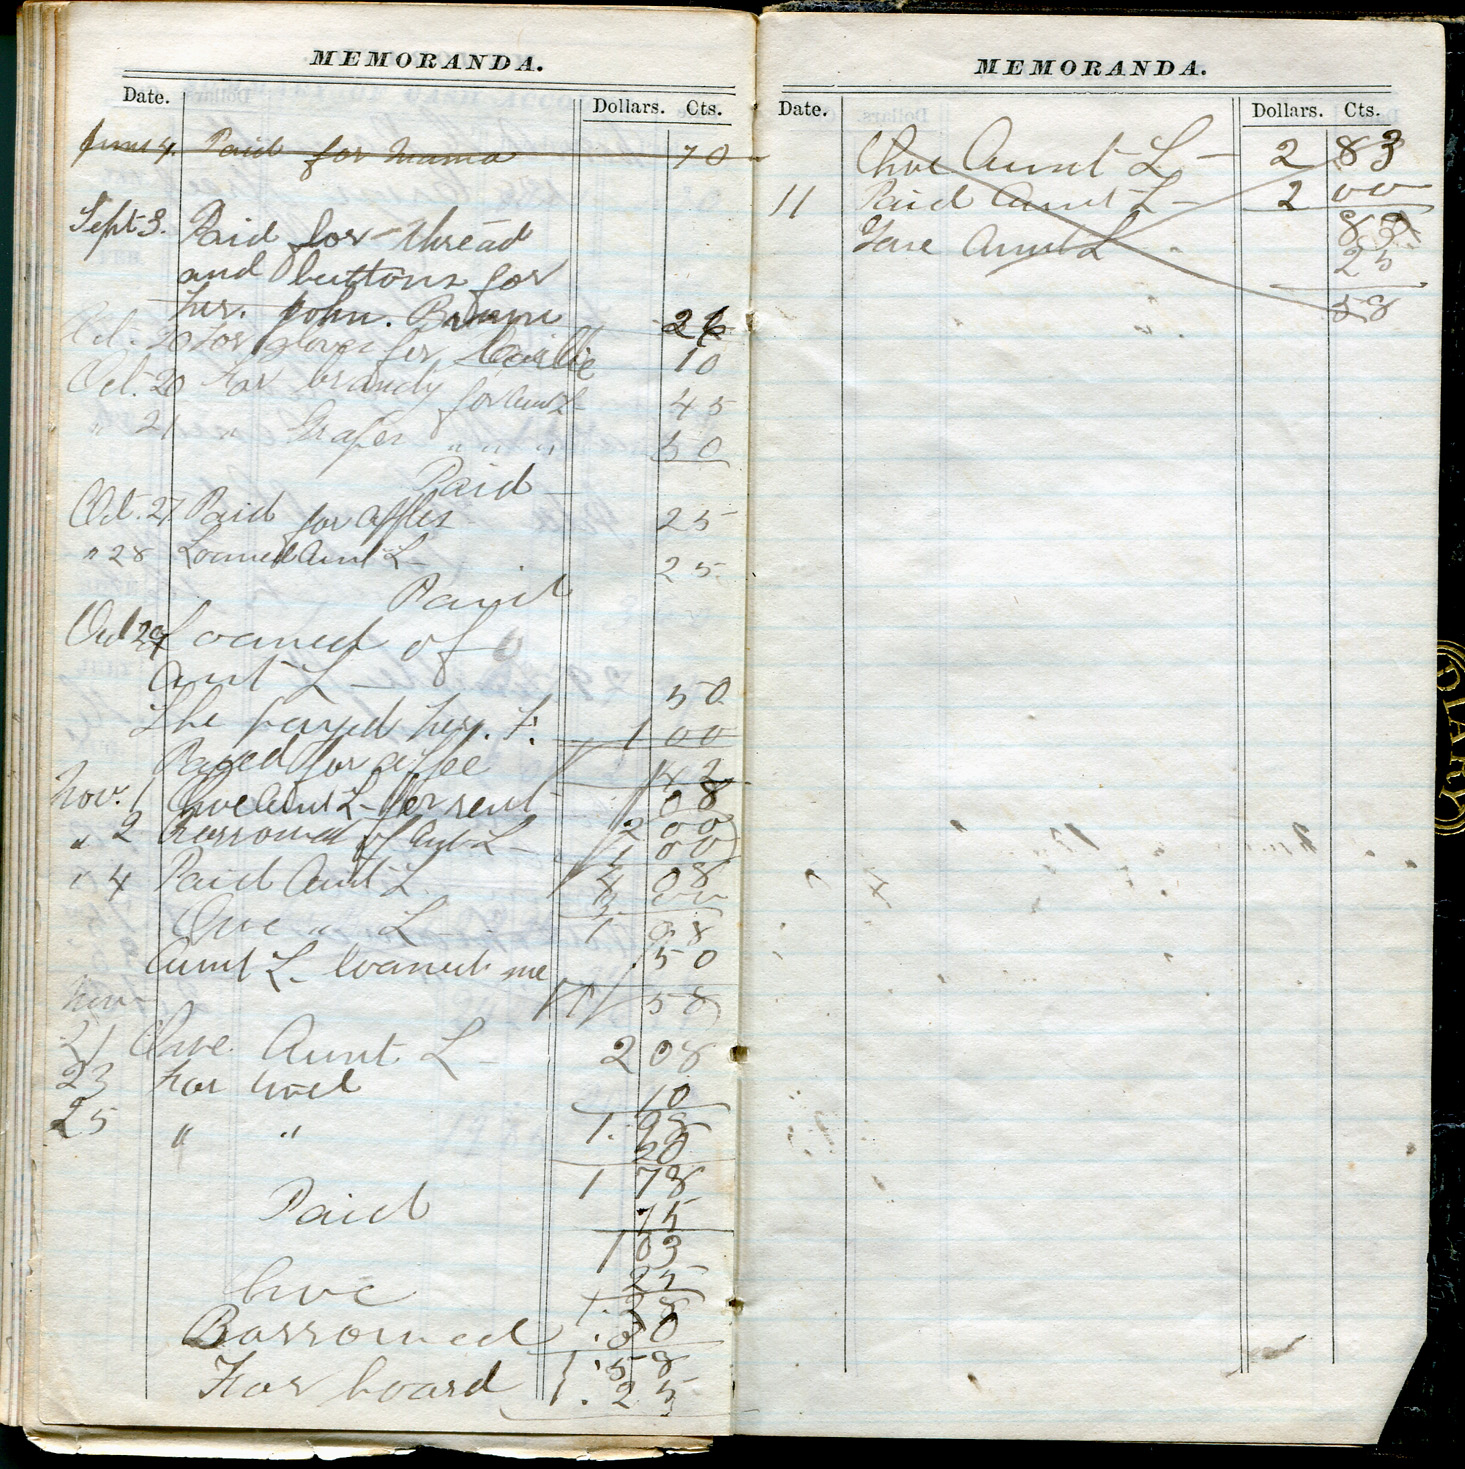 MEMORANDA.
Date. Dollars. Cts.
June 4. Paid for Mama 70
Sept 3. Paid for thread
and buttons for
her. John. 26
Oct. 20 For gloves for 10
Oct. 20 For brandy for Aunt L 45
" 21 " Grapes " " " 50
Paid
Oct. 27 Paid for apples 25
" 28 Loaned Aunt L 25
Paid
Oct 29 Loaned of
Aunt L 50
She payed 1 00
Payed for 42
Nov. 1 Owe Aunt L for rent 08
" 2 Borrowed of Aunt L 2 00
1 00
" 4 Paid Aunt L 4 08
3 00
Owe " L 1 08
Aunt L loaned me .50
Nov 1 58
21 Owe Aunt L 2 08
23 For 10
25 " " 1.98
20
1 78
Paid 75
1 03
25
Owe 1.28
Borrowed .30
1.58
For board 1.25
MEMORANDA.
Date. Dollars. Cts.
Owe Aunt L 2 83
11 Paid Aunt L 2 00
Aunt L 83
25
58
DIARY